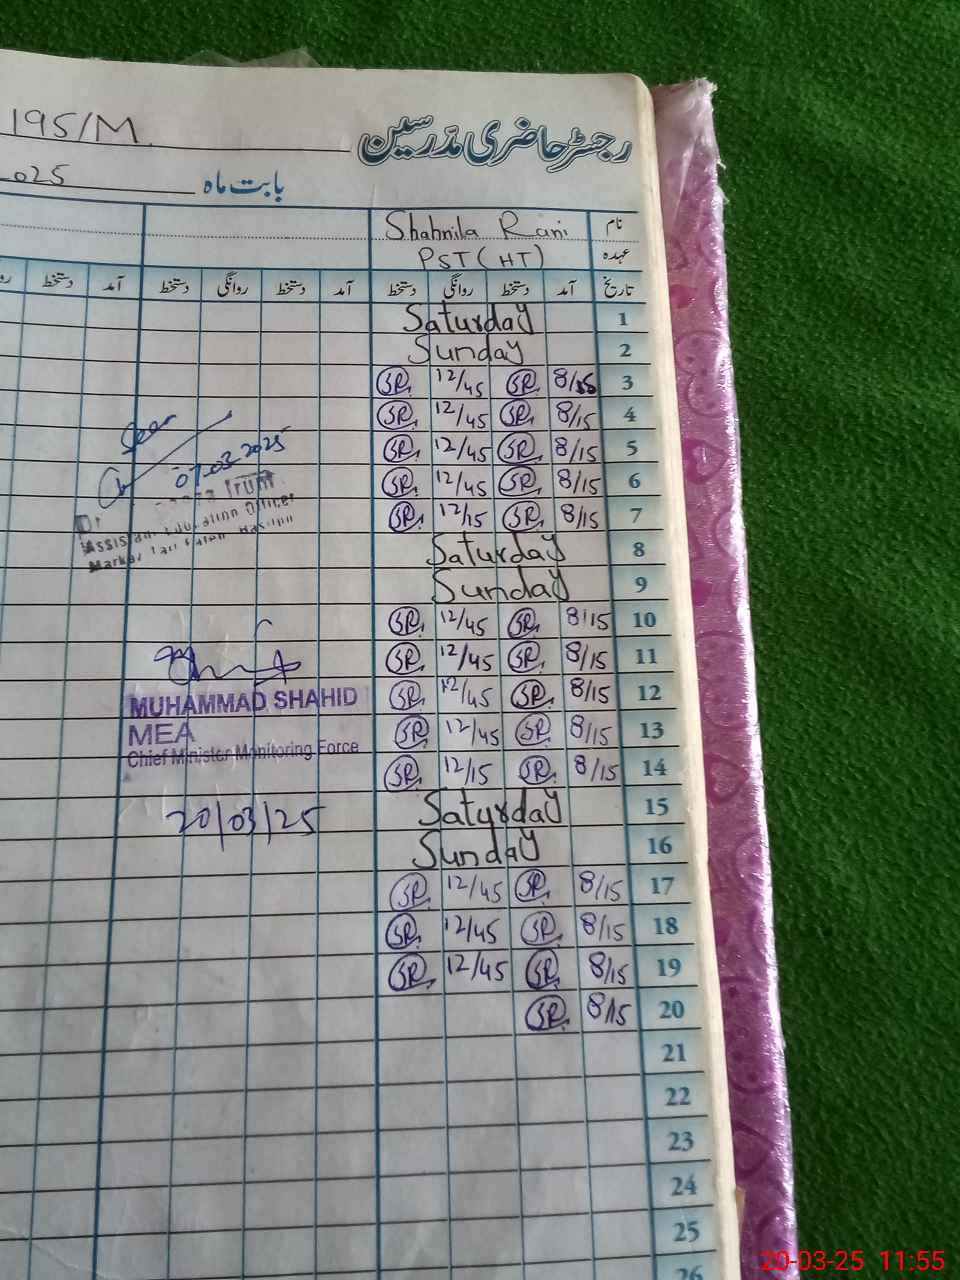 195/M
رجسٹر حاضری مدّرسین
025
بابت ماہ
نام Shabnila Rani
عہدہ PST (HT)
تاریخ آمد دستخط روانگی دستخط آمد دستخط روانگی دستخط آمد دستخط
1 Saturday
2 Sunday
3 8/15 SR. 12/45 SR.
4 8/15 SR. 12/45 SR.
5 8/15 SR. 12/45 SR.
6 8/15 SR. 12/45 SR.
7 8/15 SR. 12/15 SR.
8 Saturday
9 Sunday
10 8/15 SR. 12/45 SR.
11 8/15 SR. 12/45 SR.
12 8/15 SR. 12/45 SR.
13 8/15 SR. 12/45 SR.
14 8/15 SR. 12/15 SR.
15 Saturday
16 Sunday
17 8/15 SR. 12/45 SR.
18 8/15 SR. 12/45 SR.
19 8/15 SR. 12/45 SR.
20 8/15 SR.
21
22
23
24
25
26
Seen
07-03-2025
Assistant Education Officer
Markaz
MUHAMMAD SHAHID
MEA
Chief Minister Monitoring Force
20/03/25
20-03-25 11:55